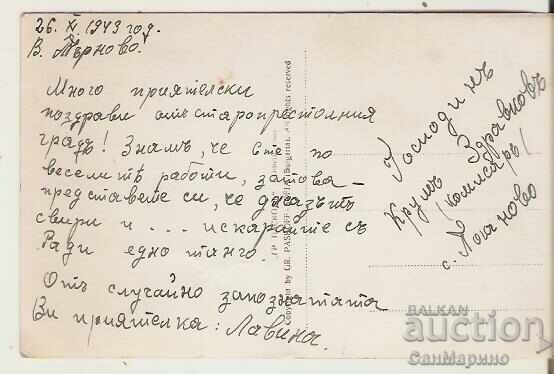 26. XI. 1943 год.
В. Търново.
Много приятелски
поздрави отъ старопрестолния
градъ! Знамъ, че сте по
веселитѣ работи, затова –
представете си, че джазътъ
свири и ... искарайте съ
Ради едно танго.
Отъ случайно запознатата
Ви приятелка: Лавина.
Copyright by GR. PASKOFF (Bulgaria). All rights reserved
Господинъ
Крумъ Здравковъ
(комисаръ)
с. Логаново
БАЛКАН
auction
СанМарино